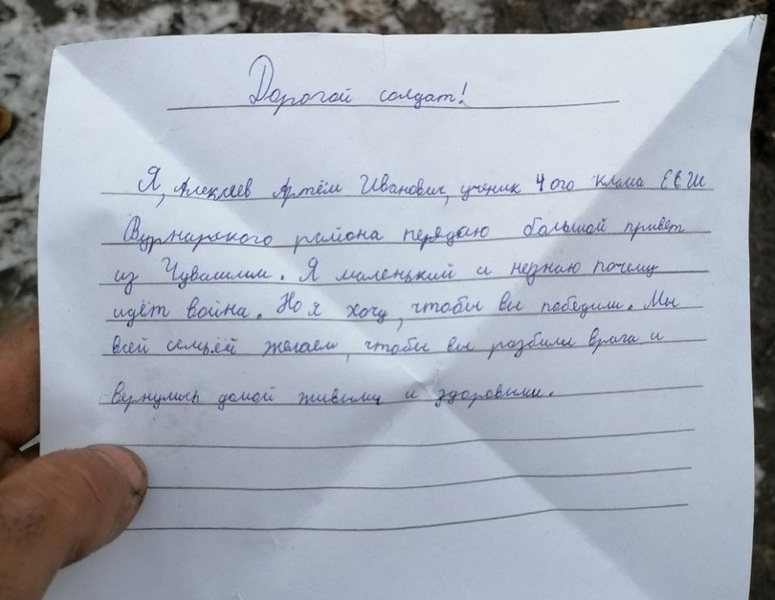 Дорогой солдат!
Я, Алексеев Артём Иванович, ученик 4 ого класса
Вурнарского района передаю большой привет
из Чувашии. Я маленький и незнаю почему
идёт война. Но я хочу, чтобы вы победили. Мы
всей семьёй желаем, чтобы вы разбили врага и
вернулись домой живыми и здоровыми.